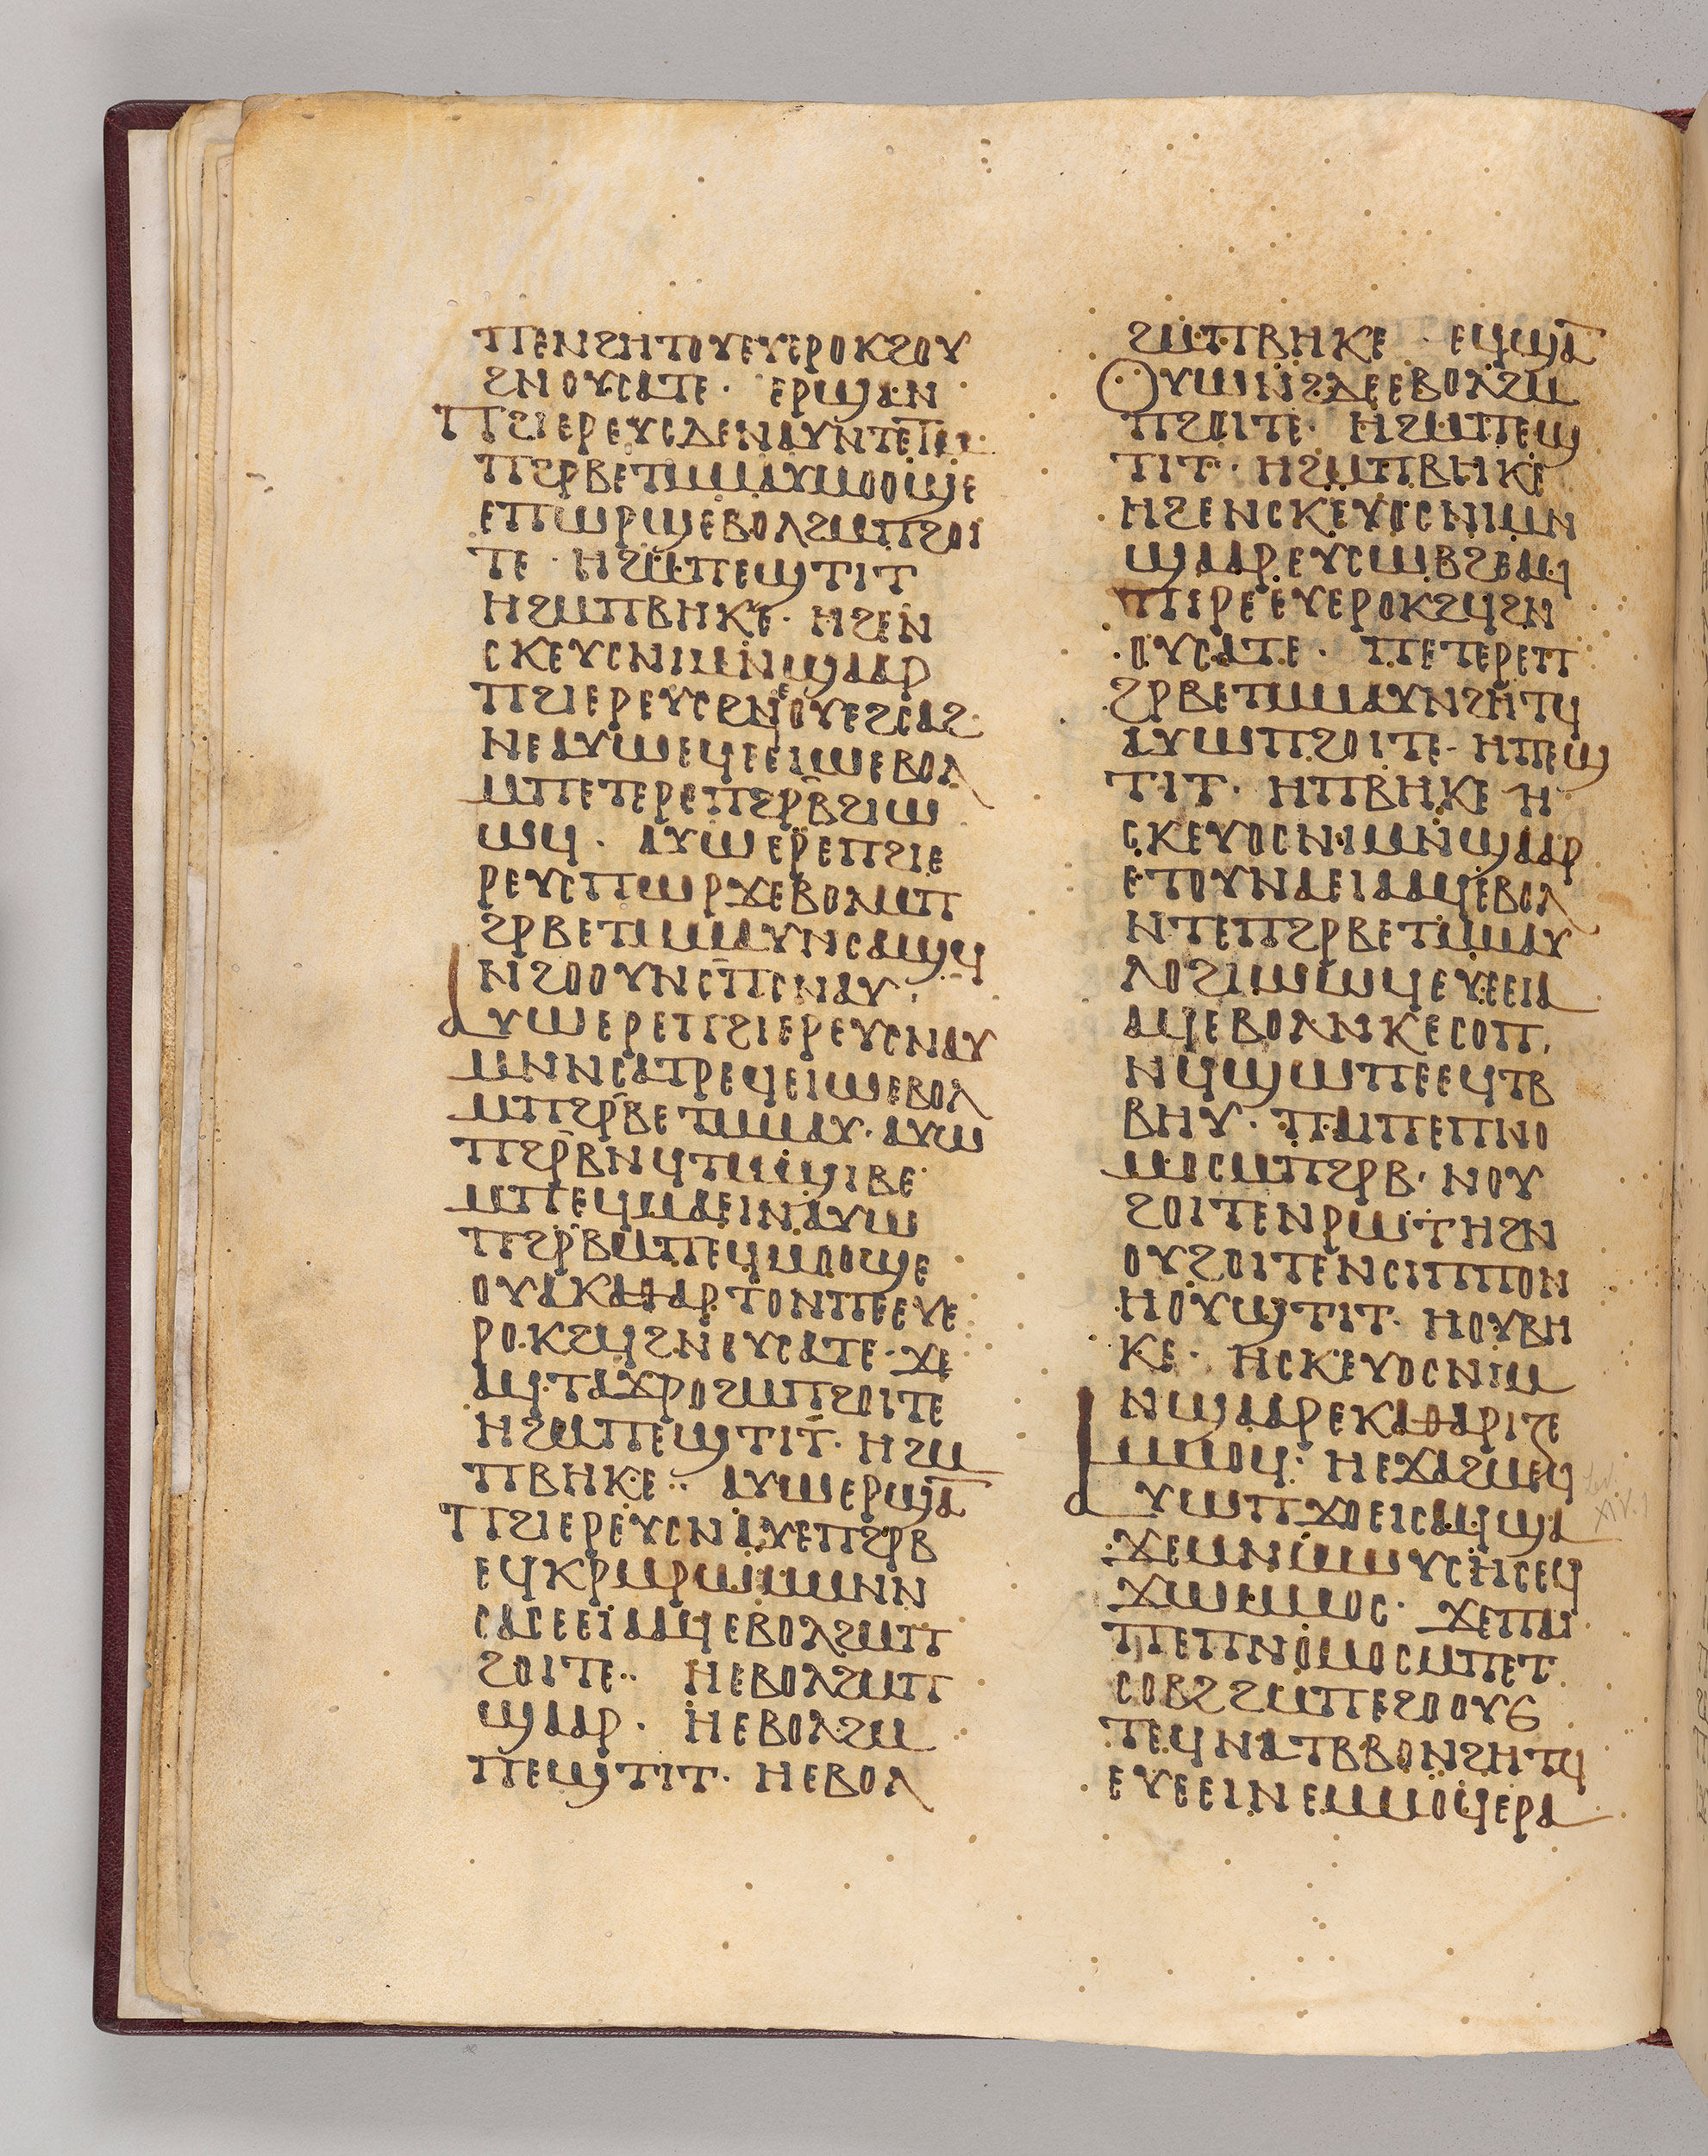 ⲡⲉⲛϩⲏⲧⲟⲩⲉⲩⲉⲣⲟⲕϩⲟⲩ
ϩⲛⲟⲩⲥⲁⲧⲉ· ⲉⲣϣⲁⲛ
ⲡϩⲓⲉⲣⲉⲩⲥⲇⲉⲛⲁⲩⲛⲧⲉⲧⲙ
ⲡϩⲣⲃⲉⲧⲙⲙⲁⲩⲙⲟⲟϣⲉ
ⲉⲡⲱⲣϣⲉⲃⲟⲗϩⲙⲡϩⲟⲓ
ⲧⲉ· ⲏϩⲙⲡⲉϣⲧⲓⲧ
ⲏϩⲙⲡⲃⲏⲕⲉ· ⲏϩⲉⲛ
ⲥⲕⲉⲩⲥⲛⲓⲙⲛϣⲁⲁⲣ
ⲡϩⲓⲉⲣⲉⲩⲥϩⲛⲟⲩⲉϩⲥⲁϩ
ⲛⲉⲁⲩⲱⲉϥⲉⲉⲓⲱⲉⲃⲟⲗ
ⲙⲡⲉⲧⲉⲣⲉⲡϩⲣⲃϩⲓⲱ
ⲱϥ· ⲁⲩⲱⲉⲣⲉⲡϩⲓⲉ
ⲣⲉⲩⲥⲡⲱⲣϫⲉⲃⲟⲗⲙⲡ
ϩⲣⲃⲉⲧⲙⲙⲁⲩⲛⲥⲁϣϥ
ⲛϩⲟⲟⲩⲛⲥⲡⲥⲛⲁⲩ·
ⲁⲩⲱⲉⲣⲉⲡϩⲓⲉⲣⲉⲩⲥⲛⲁⲩ
ⲙⲛⲛⲥⲁⲧⲣⲉϥⲉⲓⲱⲉⲃⲟⲗ
ⲙⲡϩⲣⲃⲉⲧⲙⲙⲁⲩ· ⲁⲩⲱ
ⲡϩⲣⲃⲛϥⲧⲙϣⲓⲃⲉ
ⲙⲡⲉϥⲙⲁⲉⲓⲛⲁⲩⲱ
ⲡϩⲣⲃⲙⲡⲉϥⲙⲟⲟϣⲉ
ⲟⲩⲁⲕⲁⲑⲁⲣⲧⲟⲛⲡⲉⲉⲩⲉ
ⲣⲟⲕϩϥϩⲛⲟⲩⲥⲁⲧⲉ· ϫⲉ
ⲁϥⲧⲁϫⲣⲟϩⲙⲡϩⲟⲓⲧⲉ
ⲏϩⲙⲡⲉϣⲧⲓⲧ· ⲏϩⲙ
ⲡⲃⲏⲕⲉ·· ⲁⲩⲱⲉⲣϣⲁ̅
ⲡϩⲓⲉⲣⲉⲩⲥⲛⲁⲩⲉⲡϩⲣⲃ
ⲉϥⲕⲣⲙⲣⲱⲙⲙⲛⲛ
ⲥⲁⲥⲉⲉⲓⲁⲁϥⲉⲃⲟⲗϩⲙⲡ
ϩⲟⲓⲧⲉ·· ⲏⲉⲃⲟⲗϩⲙⲡ
ϣⲁⲁⲣ· ⲏⲉⲃⲟⲗϩⲙ
ⲡⲉϣⲧⲓⲧ· ⲏⲉⲃⲟⲗ
ϩⲙⲡⲃⲏⲕⲉ· ⲉϥϣⲁ̅
ⲟⲩⲱⲛϩⲇⲉⲉⲃⲟⲗϩⲙ
ⲡϩⲟⲓⲧⲉ· ⲏϩⲙⲡⲉϣ
ⲧⲓⲧ· ⲏϩⲙⲡⲃⲏⲕⲉ
ⲏϩⲉⲛⲥⲕⲉⲩⲟⲥⲛⲓⲙⲛ
ϣⲁⲁⲣⲉⲩⲥⲱⲃϩⲉⲁϥ
ⲡⲓⲣⲉⲉⲩⲉⲣⲟⲕϩϥϩⲛ
ⲟⲩⲥⲁⲧⲉ· ⲡⲉⲧⲉⲣⲉⲡ
ϩⲣⲃⲉⲧⲙⲙⲁⲩⲛϩⲏⲧϥ
ⲁⲩⲱⲡϩⲟⲓⲧⲉ· ⲏⲡⲉϣ
ⲧⲓⲧ· ⲏⲡⲃⲏⲕⲉ ⲏ
ⲥⲕⲉⲩⲟⲥⲛⲓⲙⲛϣⲁⲁⲣ
ⲉⲧⲟⲩⲛⲁⲉⲓⲁⲁϥⲉⲃⲟⲗ
ⲛⲧⲉⲡϩⲣⲃⲉⲧⲙⲙⲁⲩ
ⲗⲟϩⲓⲱⲱϥⲉⲩⲉⲉⲓⲁ
ⲁϥⲉⲃⲟⲗⲛⲕⲉⲥⲟⲡ·
ⲛϥϣⲱⲡⲉⲉϥⲧⲃ
ⲃⲏⲩ· ⲡⲁⲓⲡⲉⲡⲛⲟ
ⲙⲟⲥⲙⲡϩⲣⲃ· ⲛⲟⲩ
ϩⲟⲓⲧⲉⲛⲣⲱⲧⲏϩⲛ
ⲟⲩϩⲟⲓⲧⲉⲛⲥⲓⲡⲡⲟⲛ
ⲏⲟⲩϣⲧⲓⲧ· ⲏⲟⲩⲃⲏ
ⲕⲉ· ⲏⲥⲕⲉⲩⲟⲥⲛⲓⲙ
ⲛϣⲁⲁⲣⲉⲕⲁⲑⲁⲣⲓⲍⲉ
ⲙⲙⲟϥ: ⲏⲉϫⲁϩⲙⲉϥ
ⲁⲩⲱⲡϫⲟⲉⲓⲥⲁϥϣⲁ
ϫⲉⲙⲛⲙⲱⲩⲥⲏⲥⲉϥ
ϫⲱⲙⲙⲟⲥ· ϫⲉⲡⲁⲓ
ⲡⲉⲡⲛⲟⲙⲟⲥⲙⲡⲉⲧ
ⲥⲟⲃϩϩⲙⲡⲉϩⲟⲟⲩⲉ
ⲧⲉϥⲛⲁⲧⲃⲃⲟⲛϩⲏⲧϥ
ⲉⲩⲉⲉⲓⲛⲉⲙⲙⲟϥⲉⲣⲁ